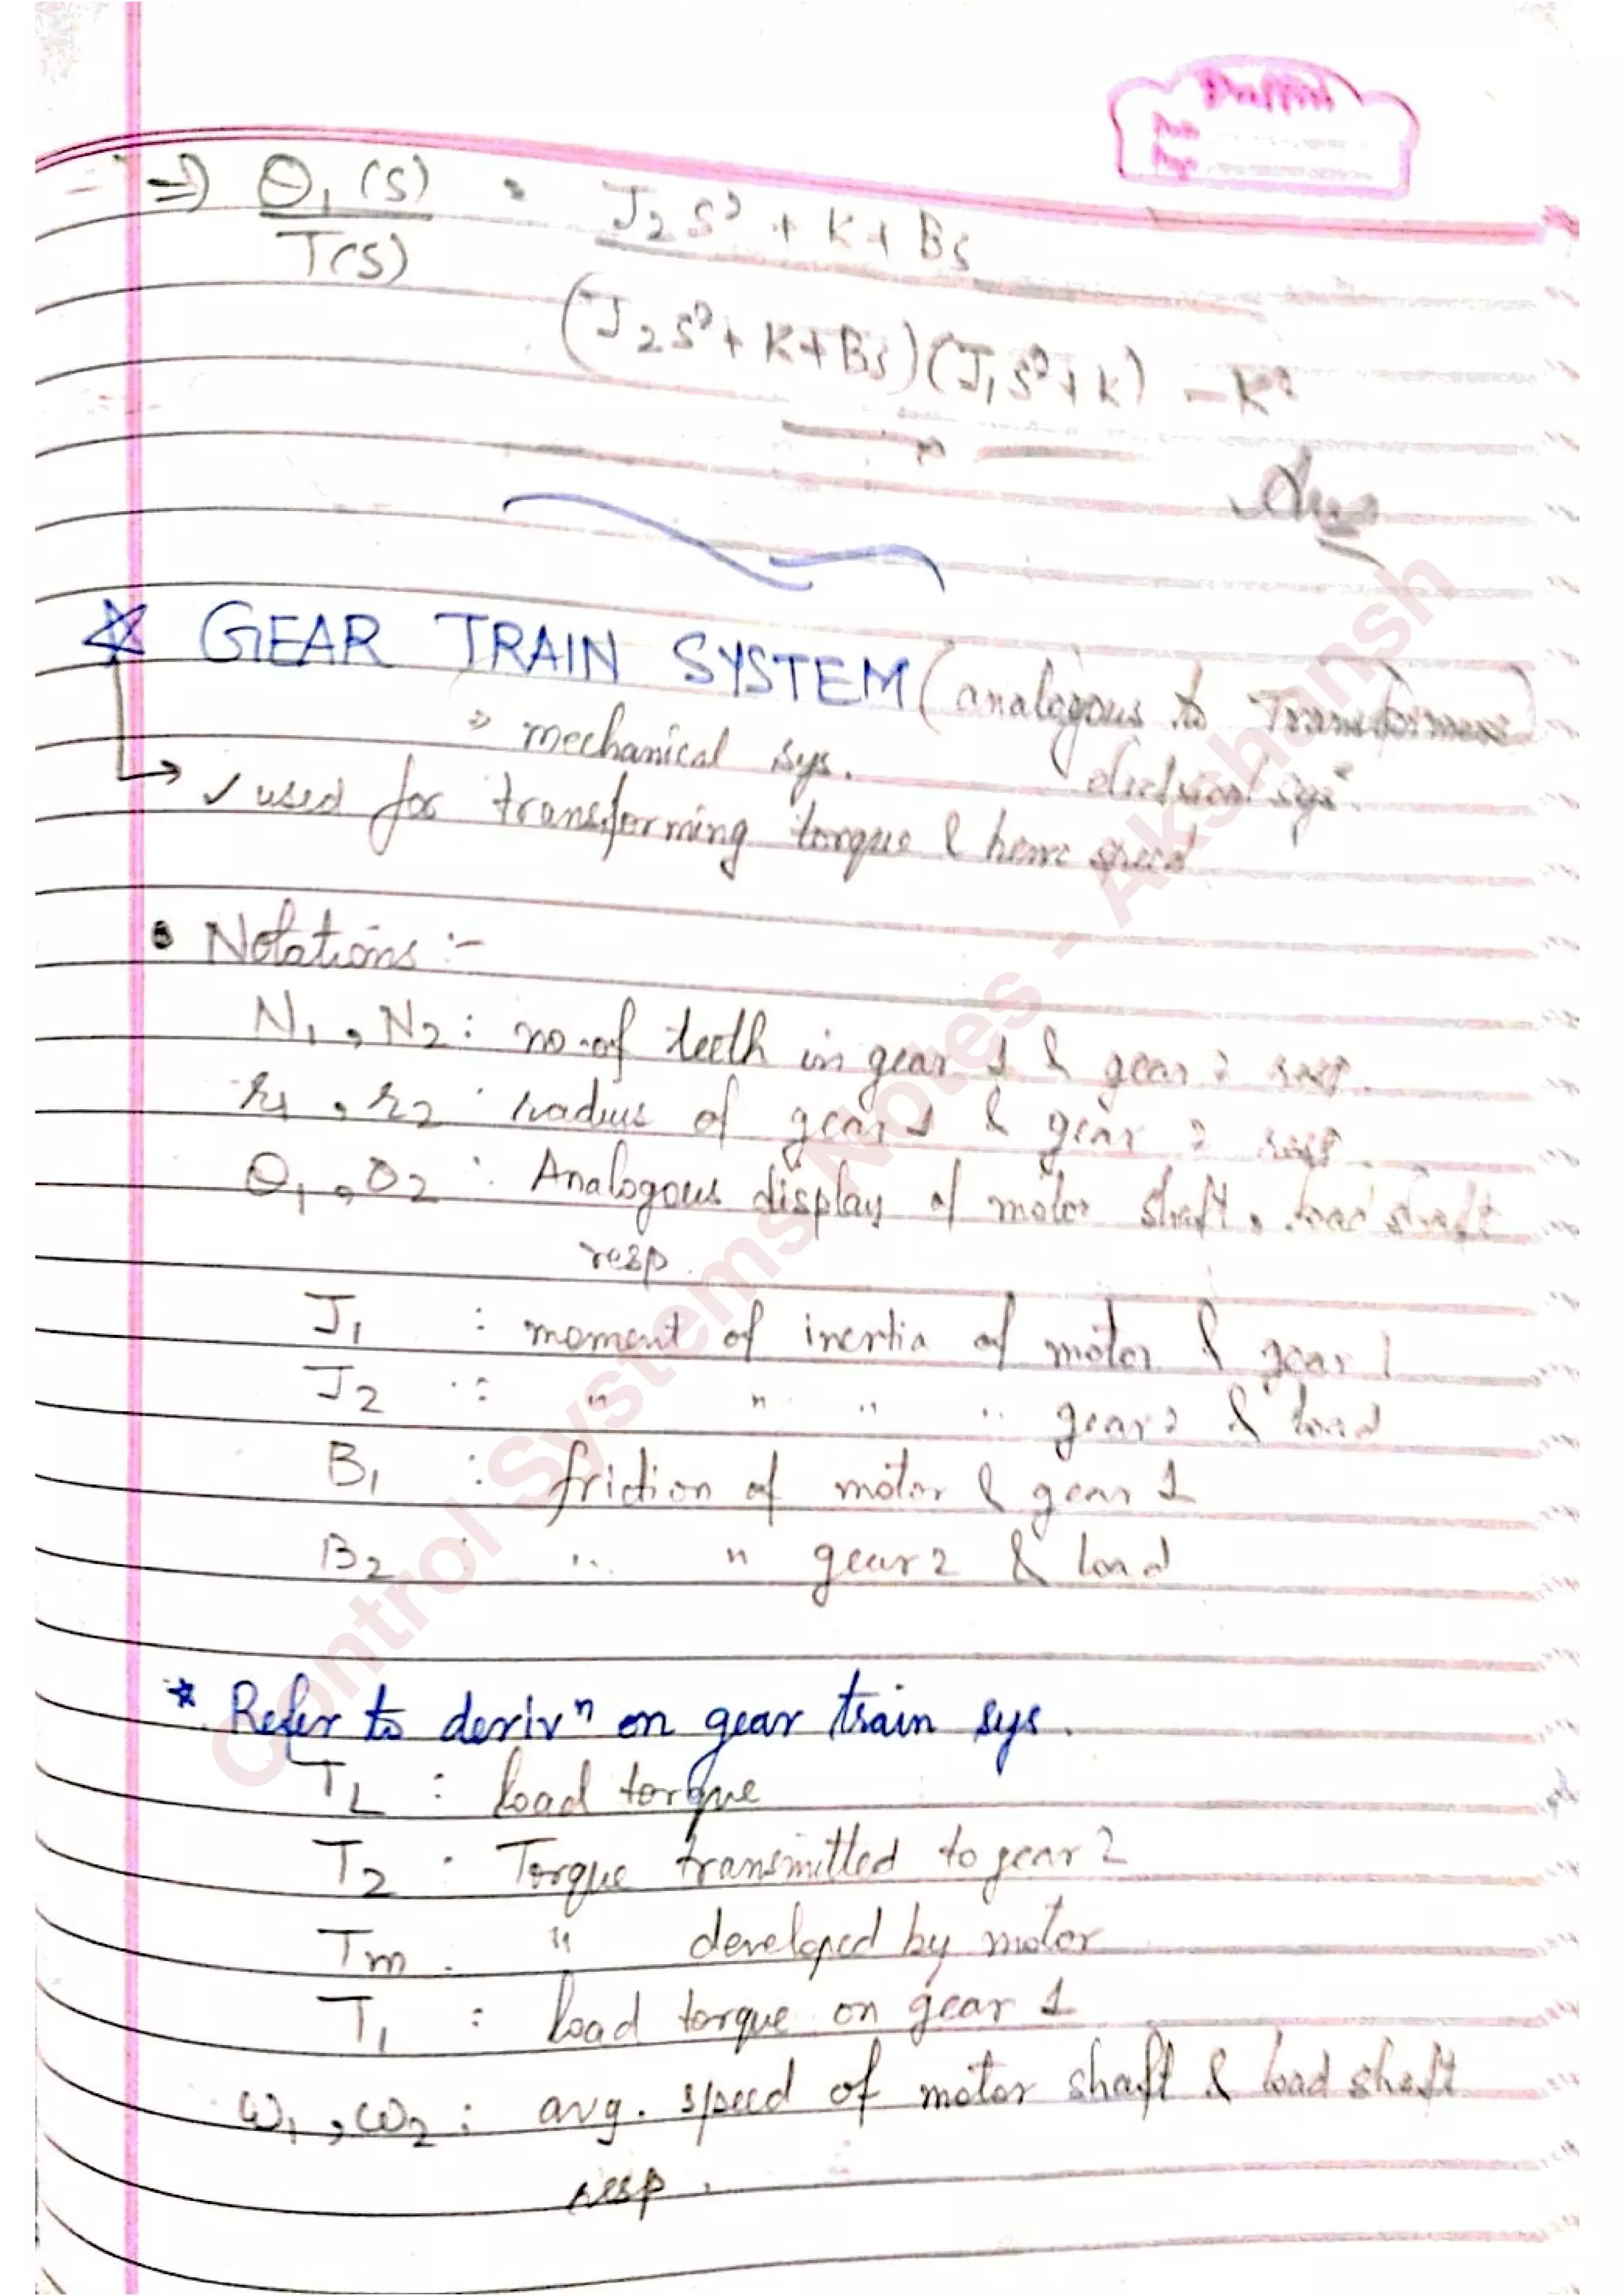 ⇒ Θ₁(s) / T(s) = J₂s² + K + Bs
(J₂s² + K + Bs)(J₁s² + K) - K²
Ans
☆ GEAR TRAIN SYSTEM (analogous to Transformer)
⇒ mechanical sys. electrical sys.
→ ✓ used for transforming torque & hence speed
• Notations :-
N₁, N₂ : no. of teeth in gear 1 & gear 2 resp.
r₁, r₂ : radius of gear 1 & gear 2 resp.
Θ₁, Θ₂ : Analogous display of motor shaft, load shaft
resp.
J₁ : moment of inertia of motor & gear 1
J₂ : " " " " gear 2 & load
B₁ : friction of motor & gear 1
B₂ : " " gear 2 & load
* Refer to derivⁿ on gear train sys.
T_L : load torque
T₂ : Torque transmitted to gear 2
Tm : " developed by motor
T₁ : load torque on gear 1
ω₁, ω₂ : avg. speed of motor shaft & load shaft
resp.
Control Systems Notes - Akshansh